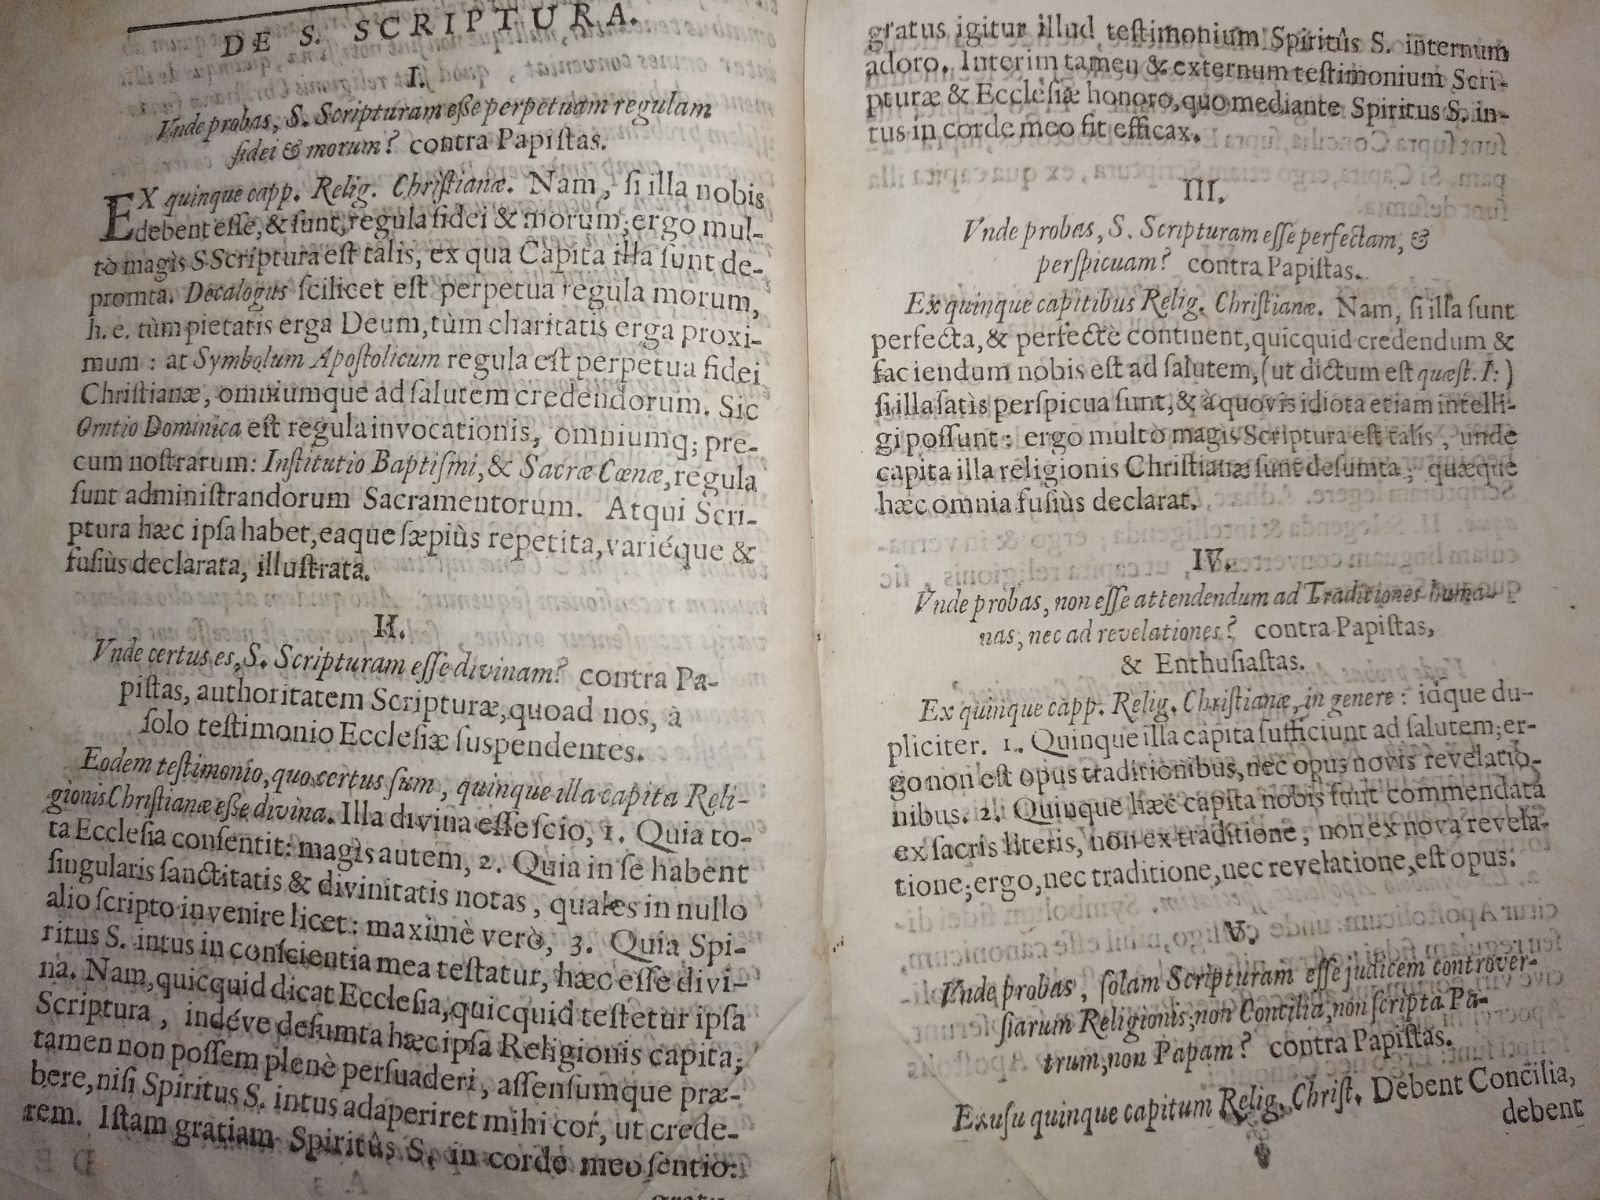 DE S. SCRIPTURA.
I.
Vnde probas, S. Scripturam eſſe perpetuam regulam
fidei & morum? contra Papiſtas.
EX quinque capp. Relig. Chriſtianæ. Nam, ſi illa nobis
debent eſſe, & ſunt, regula fidei & morum; ergo mul-
tò magis S Scriptura eſt talis, ex qua Capita illa ſunt de-
promta. Decalogus ſcilicet eſt perpetua regula morum,
h. e. tùm pietatis erga Deum, tùm charitatis erga proxi-
mum: at Symbolum Apoſtolicum regula eſt perpetua fidei
Chriſtianæ, omniumque ad ſalutem credendorum. Sic
Oratio Dominica eſt regula invocationis, omniumq; pre-
cum noſtrarum: Inſtitutio Baptiſmi, & Sacræ Cœnæ, regula
ſunt adminiſtrandorum Sacramentorum. Atqui Scri-
ptura hæc ipſa habet, eaque ſæpiùs repetita, variéque &
fuſiùs declarata, illuſtrata.
II.
Vnde certus es, S. Scripturam eſſe divinam? contra Pa-
piſtas, authoritatem Scripturæ, quoad nos, à
ſolo teſtimonio Eccleſiæ ſuspendentes.
Eodem teſtimonio, quo certus ſum, quinque illa capita Reli-
gionis Chriſtianæ eſſe divina. Illa divina eſſe ſcio, 1. Quia to-
ta Eccleſia conſentit: magis autem, 2. Quia in ſe habent
ſingularis ſanctitatis & divinitatis notas, quales in nullo
alio ſcripto invenire licet: maximè verò, 3. Quia Spi-
ritus S. intus in conſcientia mea teſtatur, hæc eſſe divi-
na. Nam, quicquid dicat Eccleſia, quicquid teſtetur ipſa
Scriptura, indéve deſumta hæc ipſa Religionis capita;
tamen non poſſem plenè perſuaderi, aſſenſumque præ-
bere, niſi Spiritus S. intus adaperiret mihi cor, ut crede-
rem. Iſtam gratiam Spiritûs S. in corde meo ſentio:
gratus igitur illud teſtimonium Spiritûs S. internum
adoro. Interim tamen & externum teſtimonium Scri-
pturæ & Eccleſiæ honoro, quo mediante Spiritus S. in-
tus in corde meo fit efficax.
III.
Vnde probas, S. Scripturam eſſe perfectam, &
perſpicuam? contra Papiſtas.
Ex quinque capitibus Relig. Chriſtianæ. Nam, ſi illa ſunt
perfecta, & perfectè continent, quicquid credendum &
faciendum nobis eſt ad ſalutem, (ut dictum eſt quæſt. I:)
ſi illa ſatis perſpicua ſunt, & à quovis idiota etiam intelli-
gi poſſunt: ergo multò magis Scriptura eſt talis, unde
capita illa religionis Chriſtianæ ſunt deſumta; quæque
hæc omnia fuſiùs declarat.
IV.
Vnde probas, non eſſe attendendum ad Traditiones huma-
nas, nec ad revelationes? contra Papiſtas,
& Enthuſiaſtas.
Ex quinque capp. Relig. Chriſtianæ, in genere: idque du-
pliciter. 1. Quinque illa capita ſufficiunt ad ſalutem; er-
go non eſt opus traditionibus, nec opus novis revelatio-
nibus. 2. Quinque hæc capita nobis ſunt commendata
ex ſacris literis, non ex traditione, non ex nova revela-
tione; ergo, nec traditione, nec revelatione, eſt opus.
V.
Vnde probas, ſolam Scripturam eſſe judicem controver-
ſiarum Religionis, non Concilia, non ſcripta Pa-
trum, non Papam? contra Papiſtas.
Ex uſu quinque capitum Relig. Chriſt. Debent Concilia,
debent